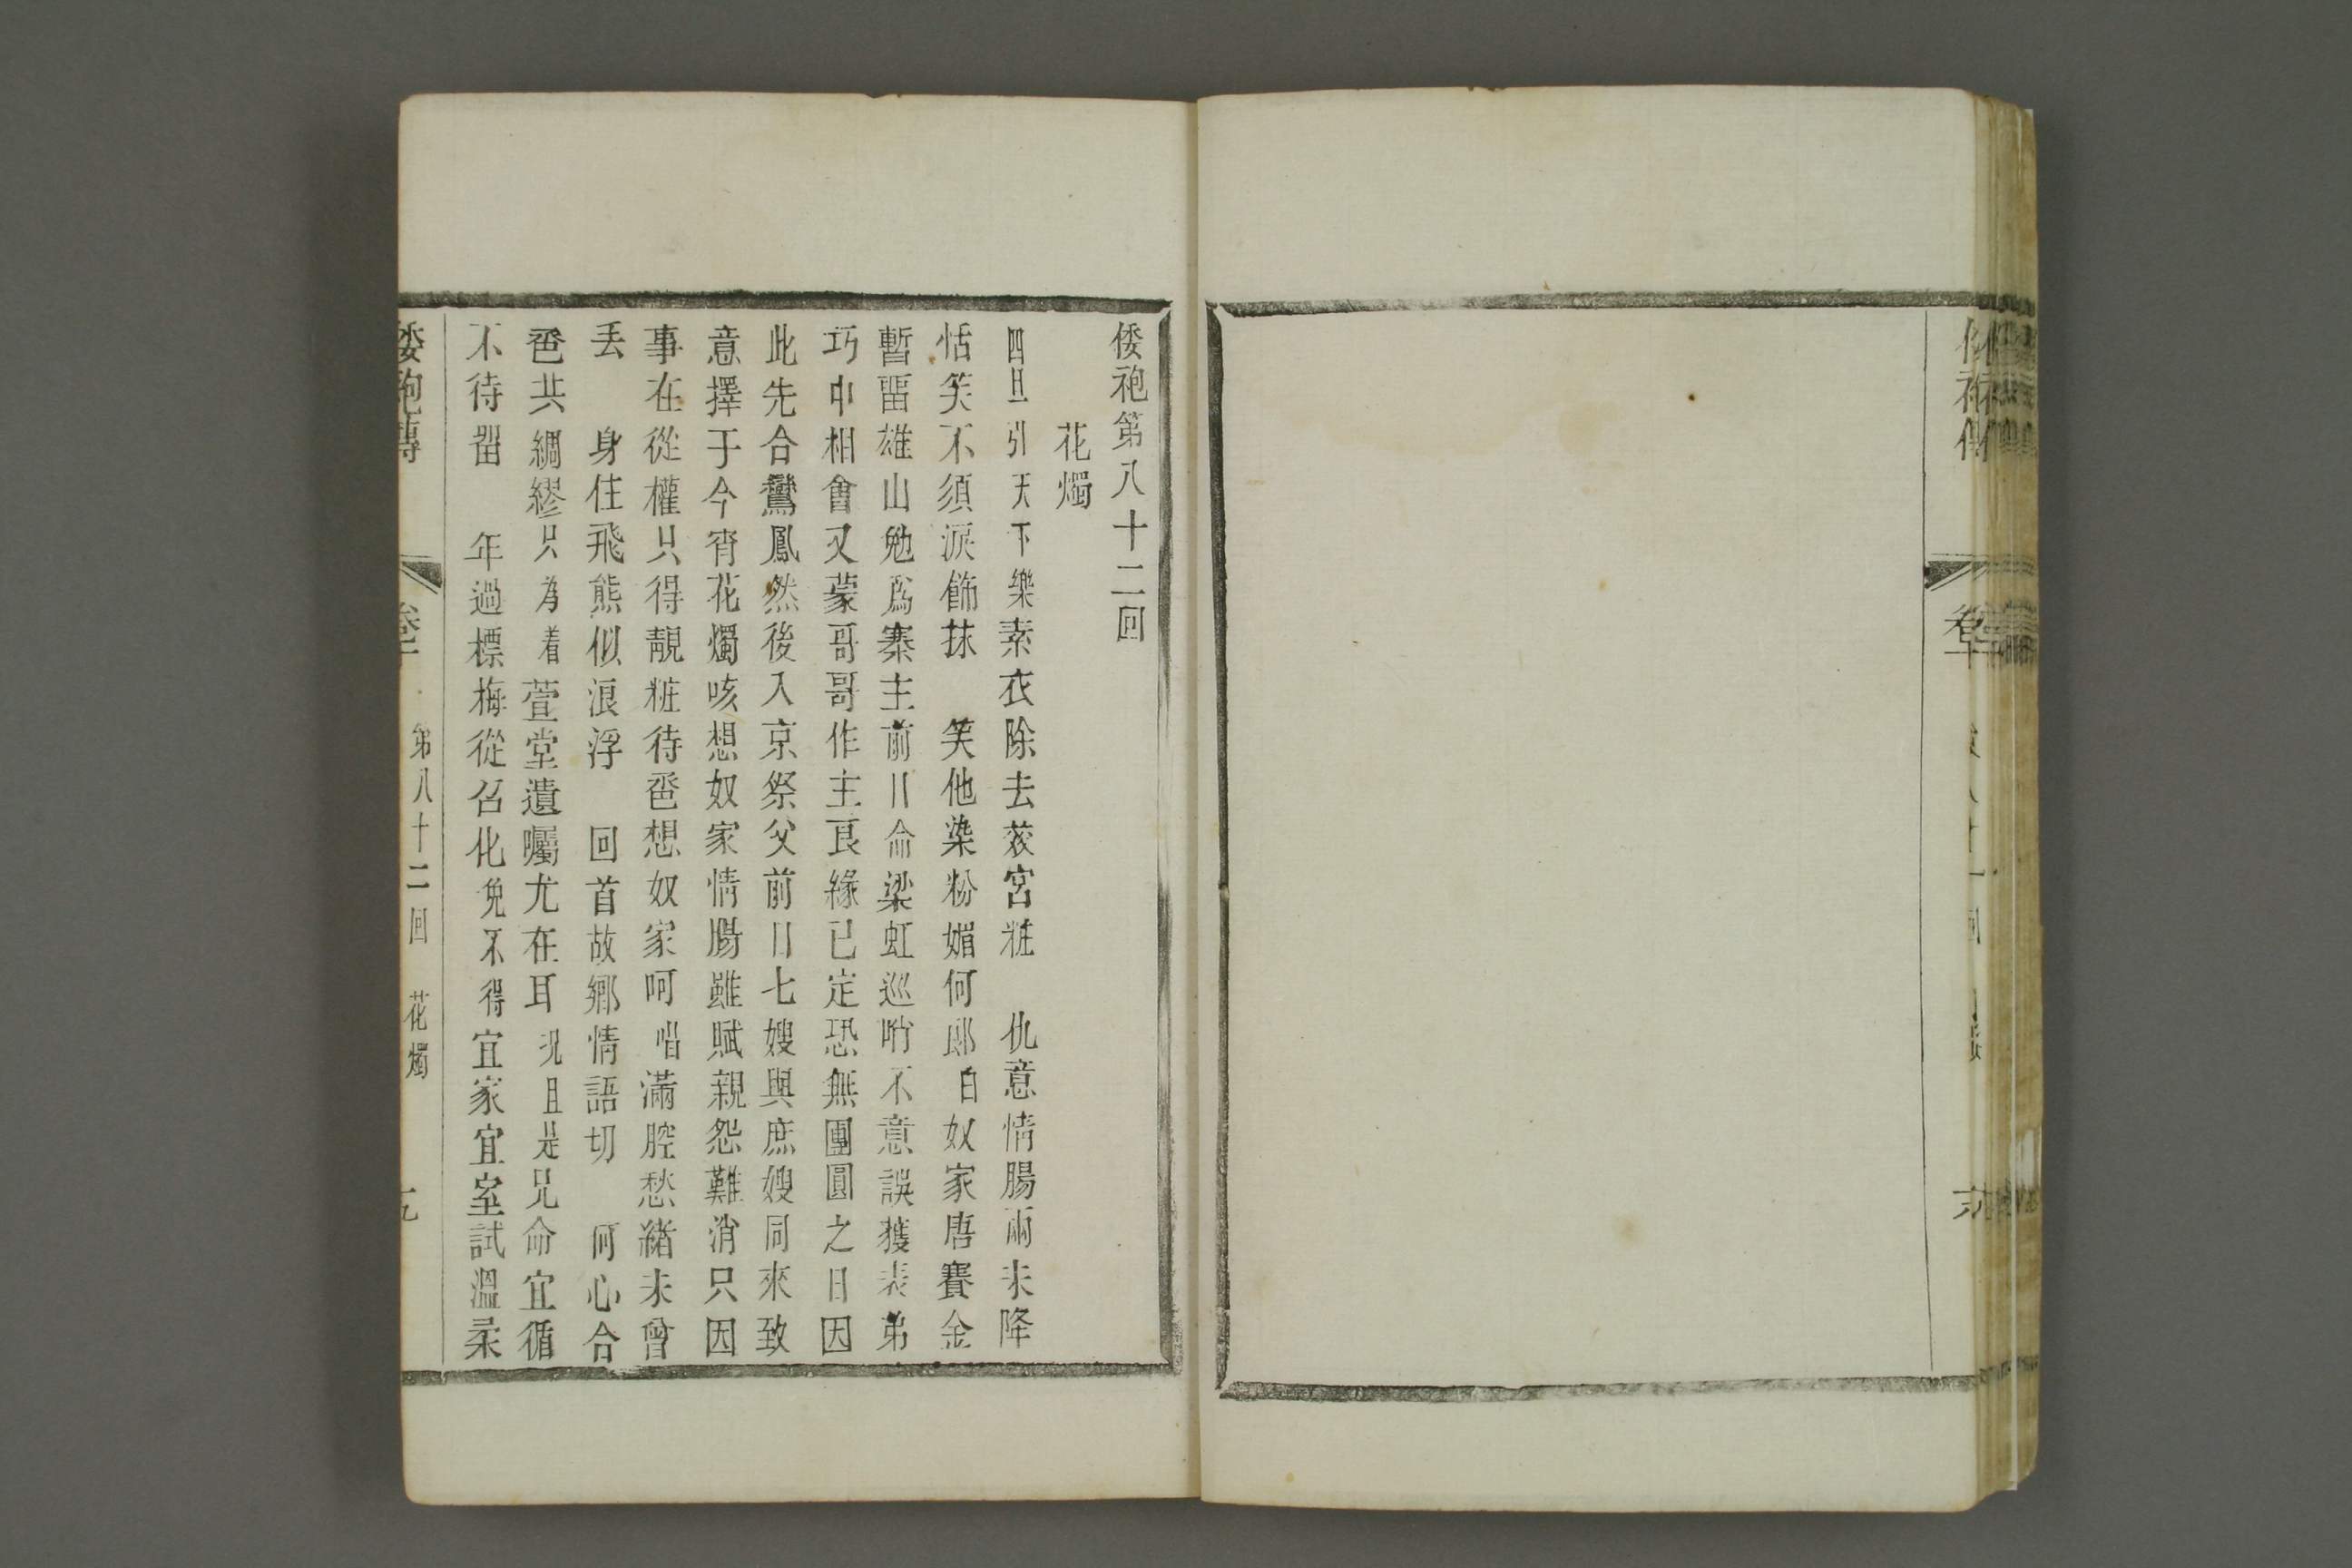 倭袍第八十二回
花燭
四旦引天下樂素衣除去效宮粧　仇意情腸兩未降
恬笑不須淚飾抹　笑他染粉媚何郎白奴家唐賽金
暫畱雄山勉爲寨主前日命梁虹巡哨不意誤獲表弟
巧中相會又蒙哥哥作主良緣已定恐無團圓之日因
此先合鸞鳳然後入京祭父前日七嫂與庶嫂同來致
意擇于今宵花燭咳想奴家情腸雖賦親怨難消只因
事在從權只得靚粧待卺想奴家呵唱滿腔愁緒未曾
丟　身住飛熊似浪浮　回首故鄉情語切　何心合
卺共綢繆只為着萱堂遺囑尤在耳況且是兄命宜循
不待畱　年過標梅從召化免不得宜家宜室試溫柔
倭袍傳　卷十　第八十二回　花燭